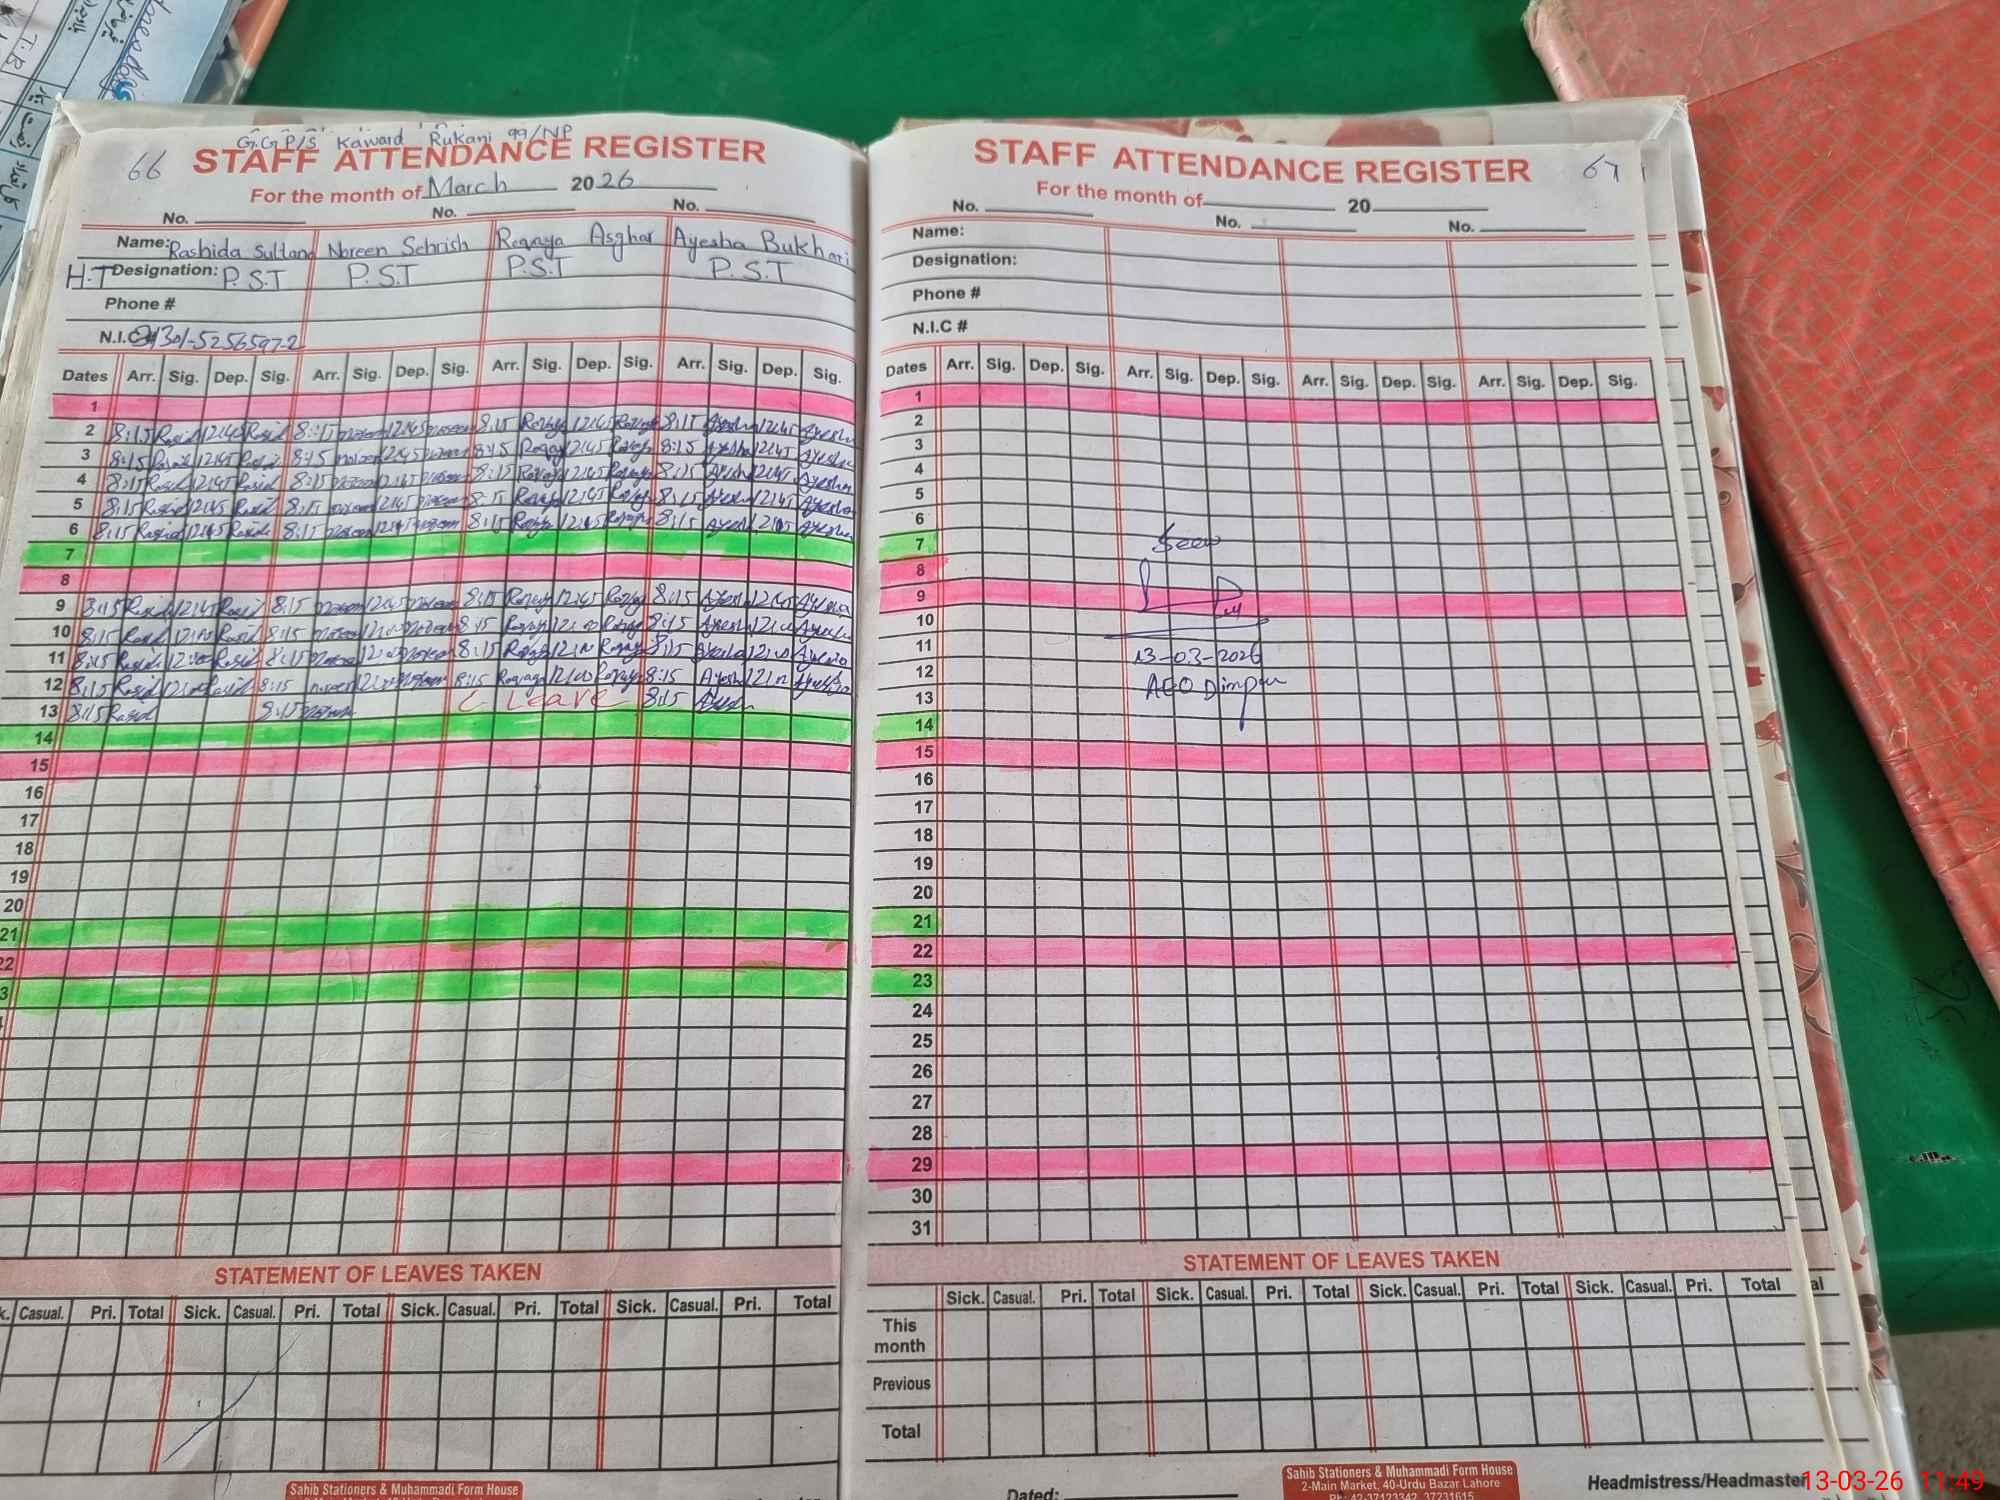 G.G P/S Kaward Rukani 99/NP
66 STAFF ATTENDANCE REGISTER
For the month of March 2026
No. No. No.
Name: Rashida Sultana Noreen Sehrish Roqaya Asghar Ayesha Bukhari
H.T Designation: P.S.T P.S.T P.S.T P.S.T
Phone #
N.I.C #
Dates Arr. Sig. Dep. Sig. Arr. Sig. Dep. Sig. Arr. Sig. Dep. Sig. Arr. Sig. Dep. Sig.
1
2 8:15 Rasid 12:45 Rasid 8:15 noreen 12:45 noreen 8:15 Roqaya 12:45 Roqaya 8:15 Ayesha 12:45 Ayesha
3 8:15 Rasid 12:45 Rasid 8:15 noreen 12:45 noreen 8:15 Roqaya 12:45 Roqaya 8:15 Ayesha 12:45 Ayesha
4 8:15 Rasid 12:45 Rasid 8:15 noreen 12:45 noreen 8:15 Roqaya 12:45 Roqaya 8:15 Ayesha 12:45 Ayesha
5 8:15 Rasid 12:45 Rasid 8:15 noreen 12:45 noreen 8:15 Roqaya 12:45 Roqaya 8:15 Ayesha 12:45 Ayesha
6 8:15 Rasid 12:45 Rasid 8:15 noreen 12:45 noreen 8:15 Roqaya 12:45 Roqaya 8:15 Ayesha 12:45 Ayesha
7
8
9 8:15 Rasid 12:45 Rasid 8:15 noreen 12:45 noreen 8:15 Roqaya 12:45 Roqaya 8:15 Ayesha 12:45 Ayesha
10 8:15 Rasid 12:00 Rasid 8:15 noreen 12:00 noreen 8:15 Roqaya 12:00 Roqaya 8:15 Ayesha 12:00 Ayesha
11 8:15 Rasid 12:00 Rasid 8:15 noreen 12:00 noreen 8:15 Roqaya 12:00 Roqaya 8:15 Ayesha 12:00 Ayesha
12 8:15 Rasid 12:00 Rasid 8:15 noreen 12:00 noreen 8:15 Roqaya 12:00 Roqaya 8:15 Ayesha 12:00 Ayesha
13 8:15 Rasid 8:15 noreen C Leave 8:15 Ayesha
14
15
16
17
18
19
20
21
22
3
STATEMENT OF LEAVES TAKEN
Casual. Pri. Total Sick. Casual. Pri. Total Sick. Casual. Pri. Total Sick. Casual. Pri. Total
Sahib Stationers & Muhammadi Form House
STAFF ATTENDANCE REGISTER 67
For the month of 20
No. No. No.
Name:
Designation:
Phone #
N.I.C #
Dates Arr. Sig. Dep. Sig. Arr. Sig. Dep. Sig. Arr. Sig. Dep. Sig. Arr. Sig. Dep. Sig.
1
2
3
4
5
6
7 Seen
8
9
10
11 13-03-2026
12 AEO
13
14
15
16
17
18
19
20
21
22
23
24
25
26
27
28
29
30
31
STATEMENT OF LEAVES TAKEN
Sick. Casual. Pri. Total Sick. Casual. Pri. Total Sick. Casual. Pri. Total Sick. Casual. Pri. Total
This month
Previous
Total
Sahib Stationers & Muhammadi Form House
2-Main Market, 40-Urdu Bazar Lahore
Ph: 42-37123342, 37231615
Dated:
Headmistress/Headmaster
13-03-26 11:49